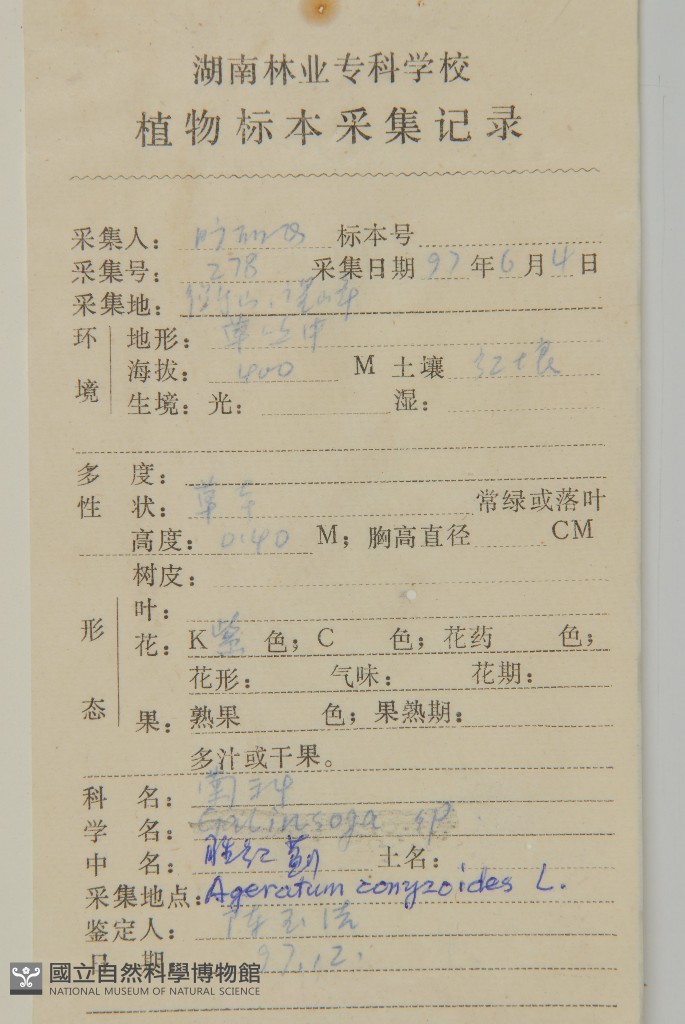 湖南林业专科学校
植物标本采集记录
采集人： 标本号
采集号：278 采集日期 97年6月4日
采集地：
环境 地形：草丛中
海拔：400 M 土壤 红壤
生境：光： 湿：
多度：
性状：草本 常绿或落叶
高度：0.40 M；胸高直径 CM
树皮：
形态 叶：
花：K紫色；C 色；花药 色；
花形： 气味： 花期：
果：熟果 色；果熟期：
多汁或干果。
科名：菊科
学名：Galinsoga
中名：胜红蓟 土名：
采集地点：Ageratum conyzoides L.
鉴定人：
日期 97.12.
國立自然科學博物館
NATIONAL MUSEUM OF NATURAL SCIENCE